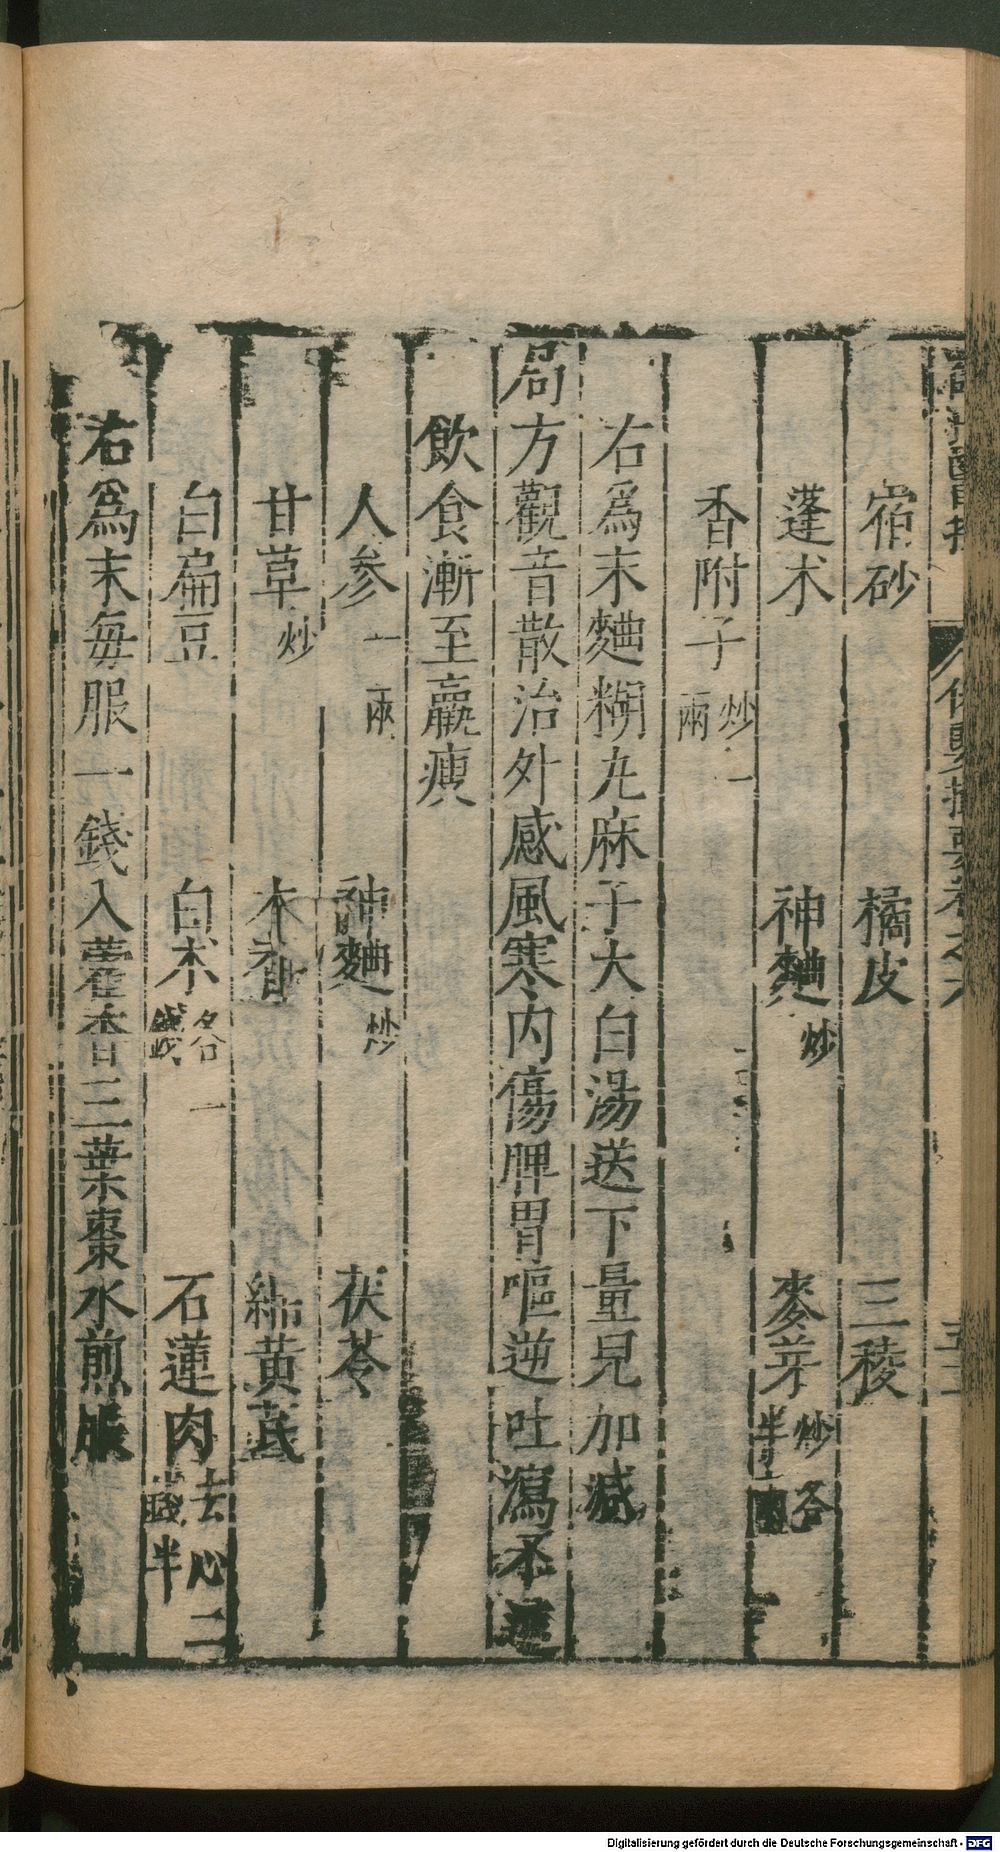 保嬰撮要卷之六 五十一
宿砂 橘皮 三稜
蓬朮 神麯炒 麥芽炒各半
香附子炒一兩
右爲末麯糊丸麻子大白湯送下量兒加減
局方觀音散治外感風寒内傷脾胃嘔逆吐瀉不進
飲食漸至羸瘦
人參一兩 神麯炒 茯苓
甘草炒 木香 綿黃芪
白扁豆 白朮各一錢 石蓮肉去心二錢半
右爲末每服一錢入藿香三葉棗水煎服
Digitalisierung gefördert durch die Deutsche Forschungsgemeinschaft - DFG